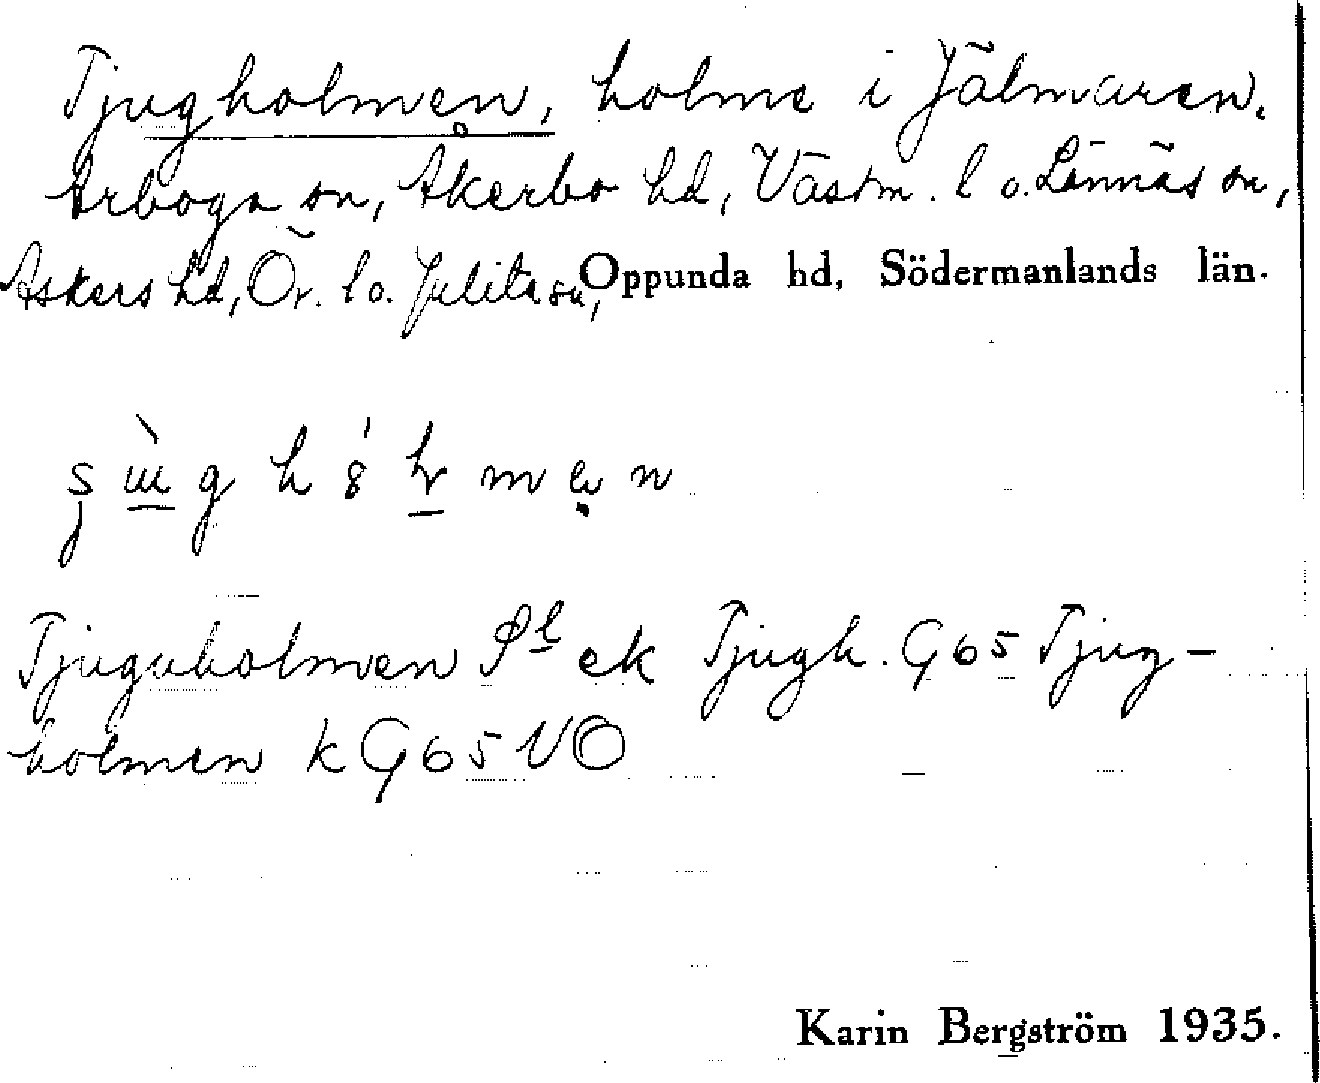 Tjugholmen, holme i Jälmaren.
Arboga sn, Åkerbo hd, Västm. l o. Lännäs sn,
Askers hd, Ör. l o. Julita sn, Oppunda hd, Södermanlands län.
Tjuguholmen ek Tjugh. G65 Tjug-
holmen k G65 VO
Karin Bergström 1935.